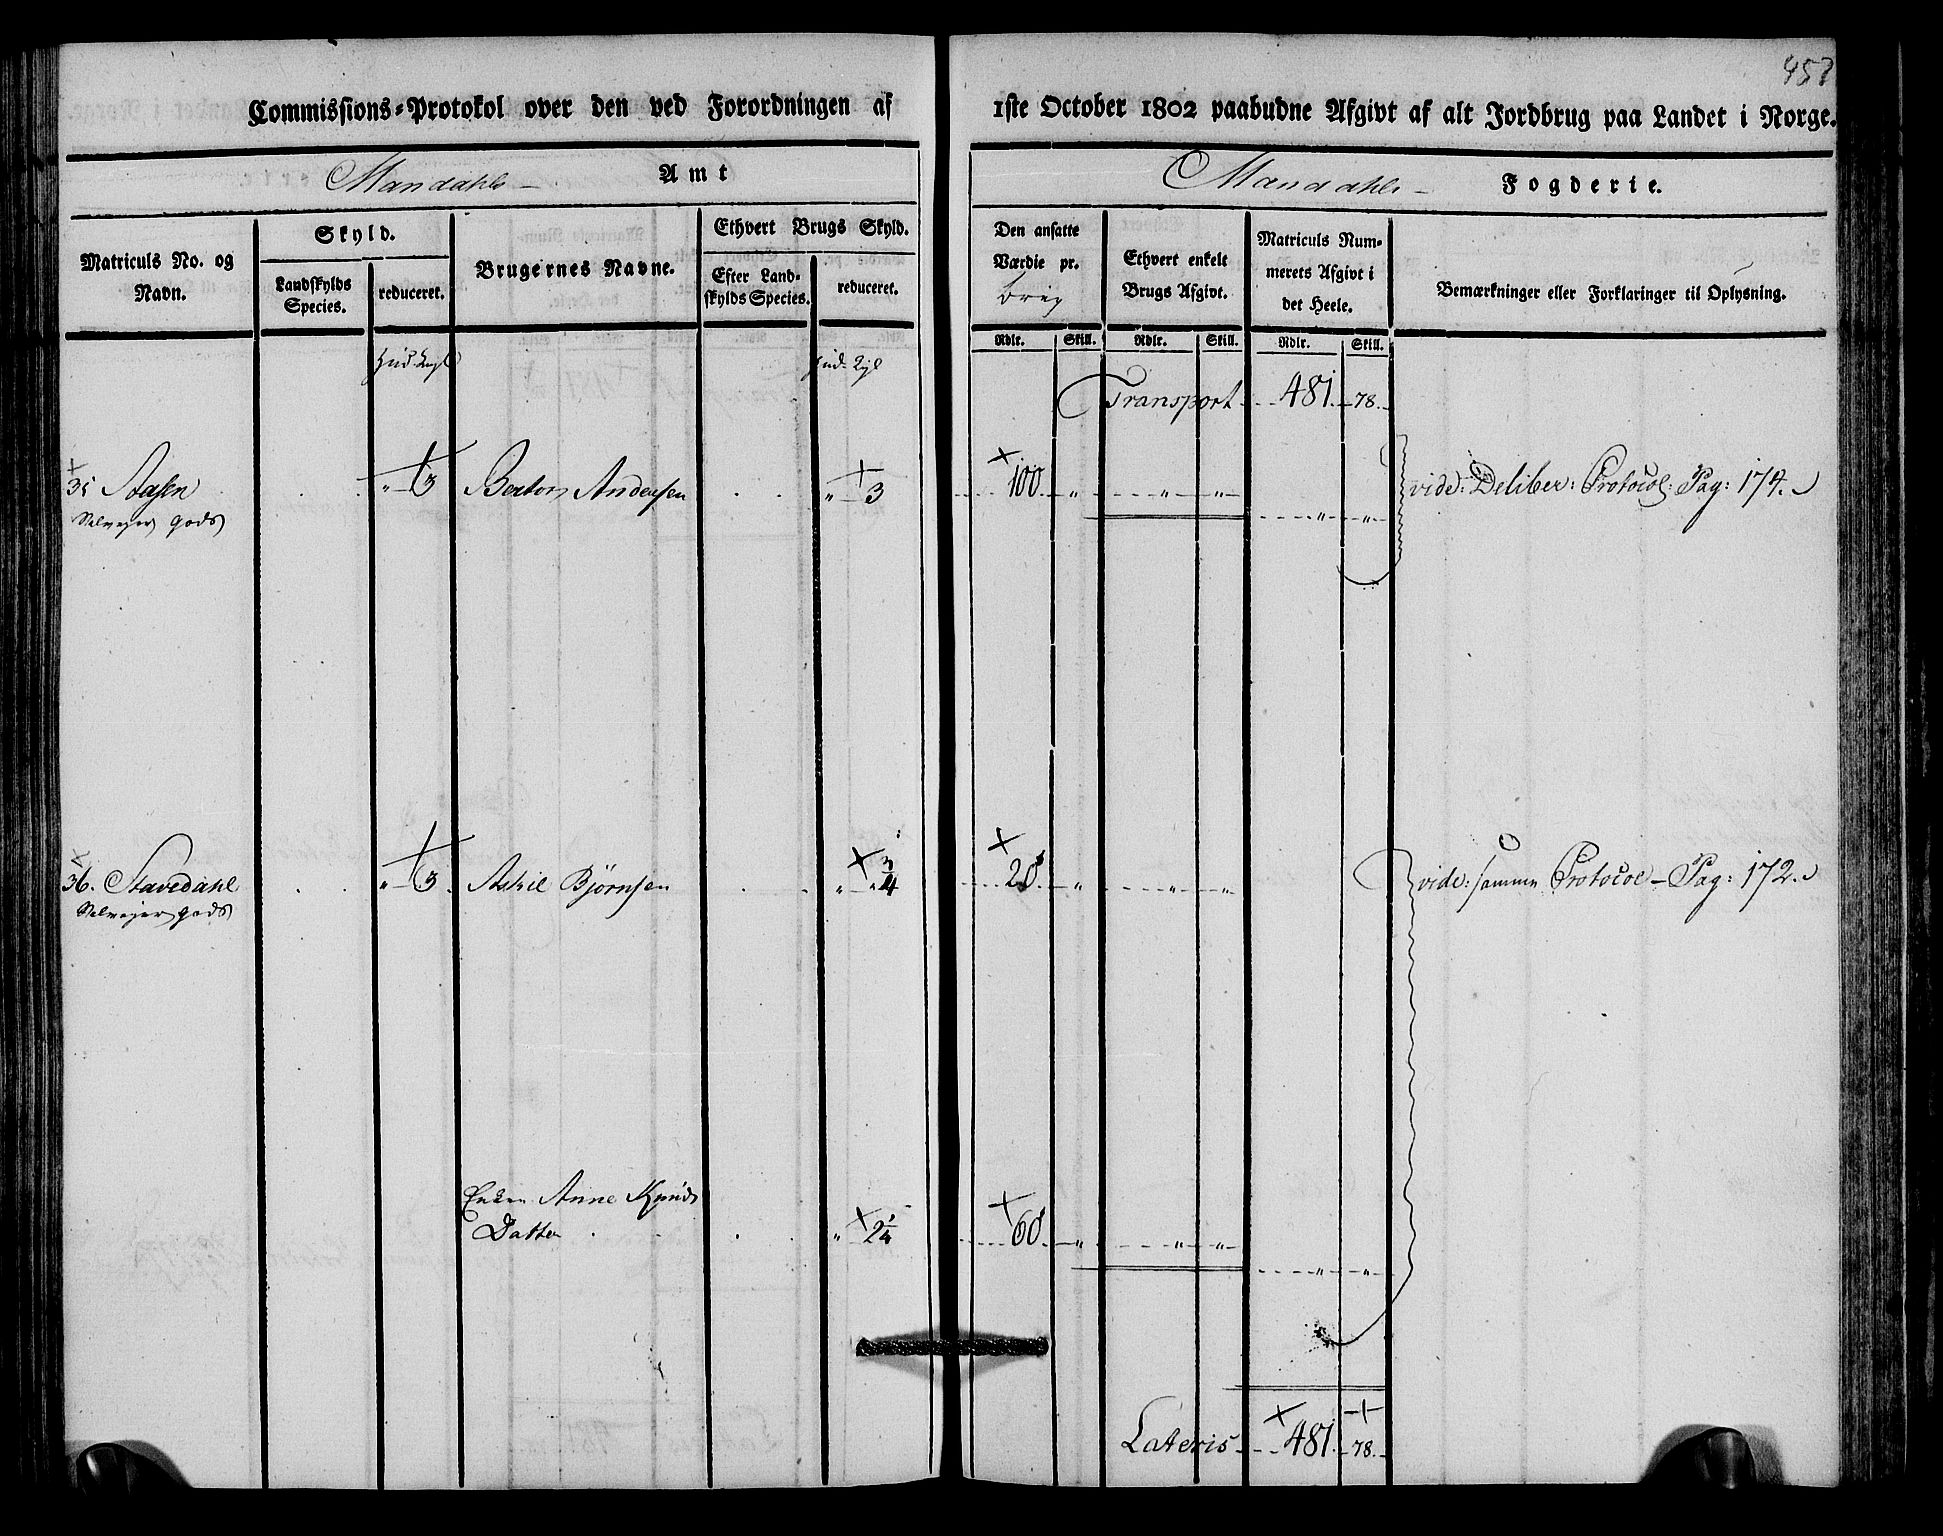 457
Commissions-Protokol over den ved Forordningen af 1ste October 1802 paabudne Afgivt af alt Jordbrug paa Landet i Norge.
Mandahls Amt
Mandahls Fogderie.
Matriculs No. og Navn.
Skyld.
Landskylds Species.
reduceret.
Brugernes Navne.
Ethvert Brugs Skyld.
Efter Landskylds Species.
reduceret.
Den ansatte Værdie pr.
Ethvert enkelt Brugs Afgivt.
Matriculs Nummerets Afgivt i det Heele.
Bemærkninger eller Forklaringer til Oplysning.
Rdlr. Skill. Rdlr. Skill. Rdlr. Skill.
Transport 481. 78.
35 Aasen " 3 Andersen " 3 100 " " " vide: Deliber: Protocol: Pag: 174.
Selveyer gods " "
36. Stavedahl " 3. Askil Bjørnsen " " 3/4 20 " " " vide: samme Protocol - Pag: 172.
Selveyer gods
Enken Anne Knuds
Datter " 2 1/4 60 " " "
" "
Lateris 481. 78.